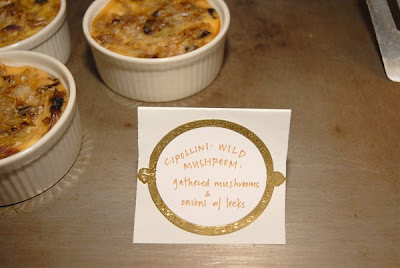 CIPOLLINI: WILD
MUSHROOM:
gathered mushrooms
&
onions w/ leeks